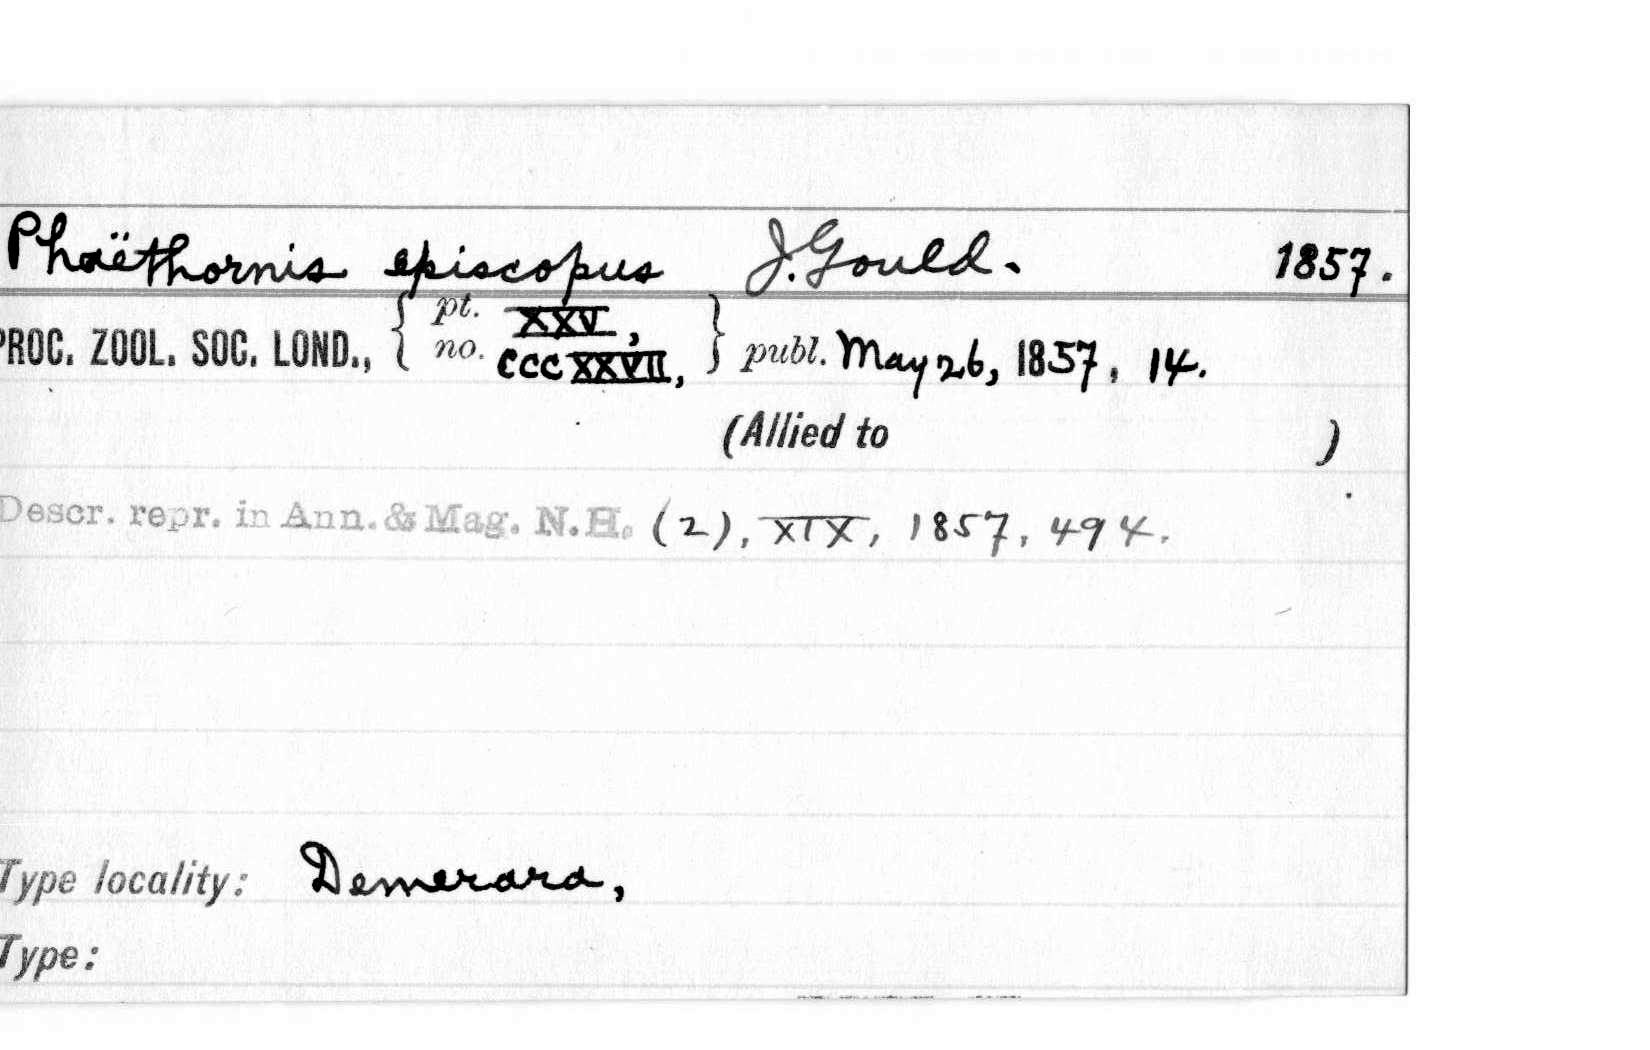 Phaëthornis episcopus J. Gould. 1857.
PROC. ZOOL. SOC. LOND., { pt. XXV, no. CCCXXVII, } publ. May 26, 1857, 14.
(Allied to )
Descr. repr. in Ann. & Mag. N.H. (2), XIX, 1857, 494.
Type locality: Demerara,
Type: